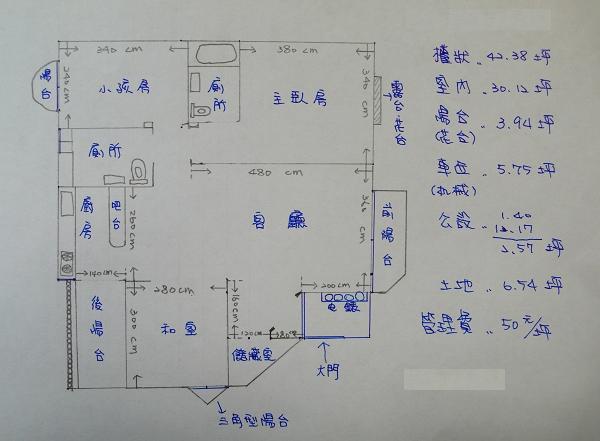 340 cm
380 cm
陽台
340cm
小孩房
廁所
主臥房
340 cm
露台花台
廁所
480 cm
廚房
吧台
260cm
客廳
360 cm
前陽台
140cm
280 cm
160cm
200cm
電鍍
後陽台
300 cm
和室
120cm
80cm
儲藏室
大門
三角型陽台
權狀 〃 42.38坪
室內 〃 30.12坪
陽台 〃 3.94坪
(花台)
車位 〃 5.75坪
(机械)
公設 〃 1.40
2.57坪
土地 〃 6.54坪
管理費 〃 50元/坪